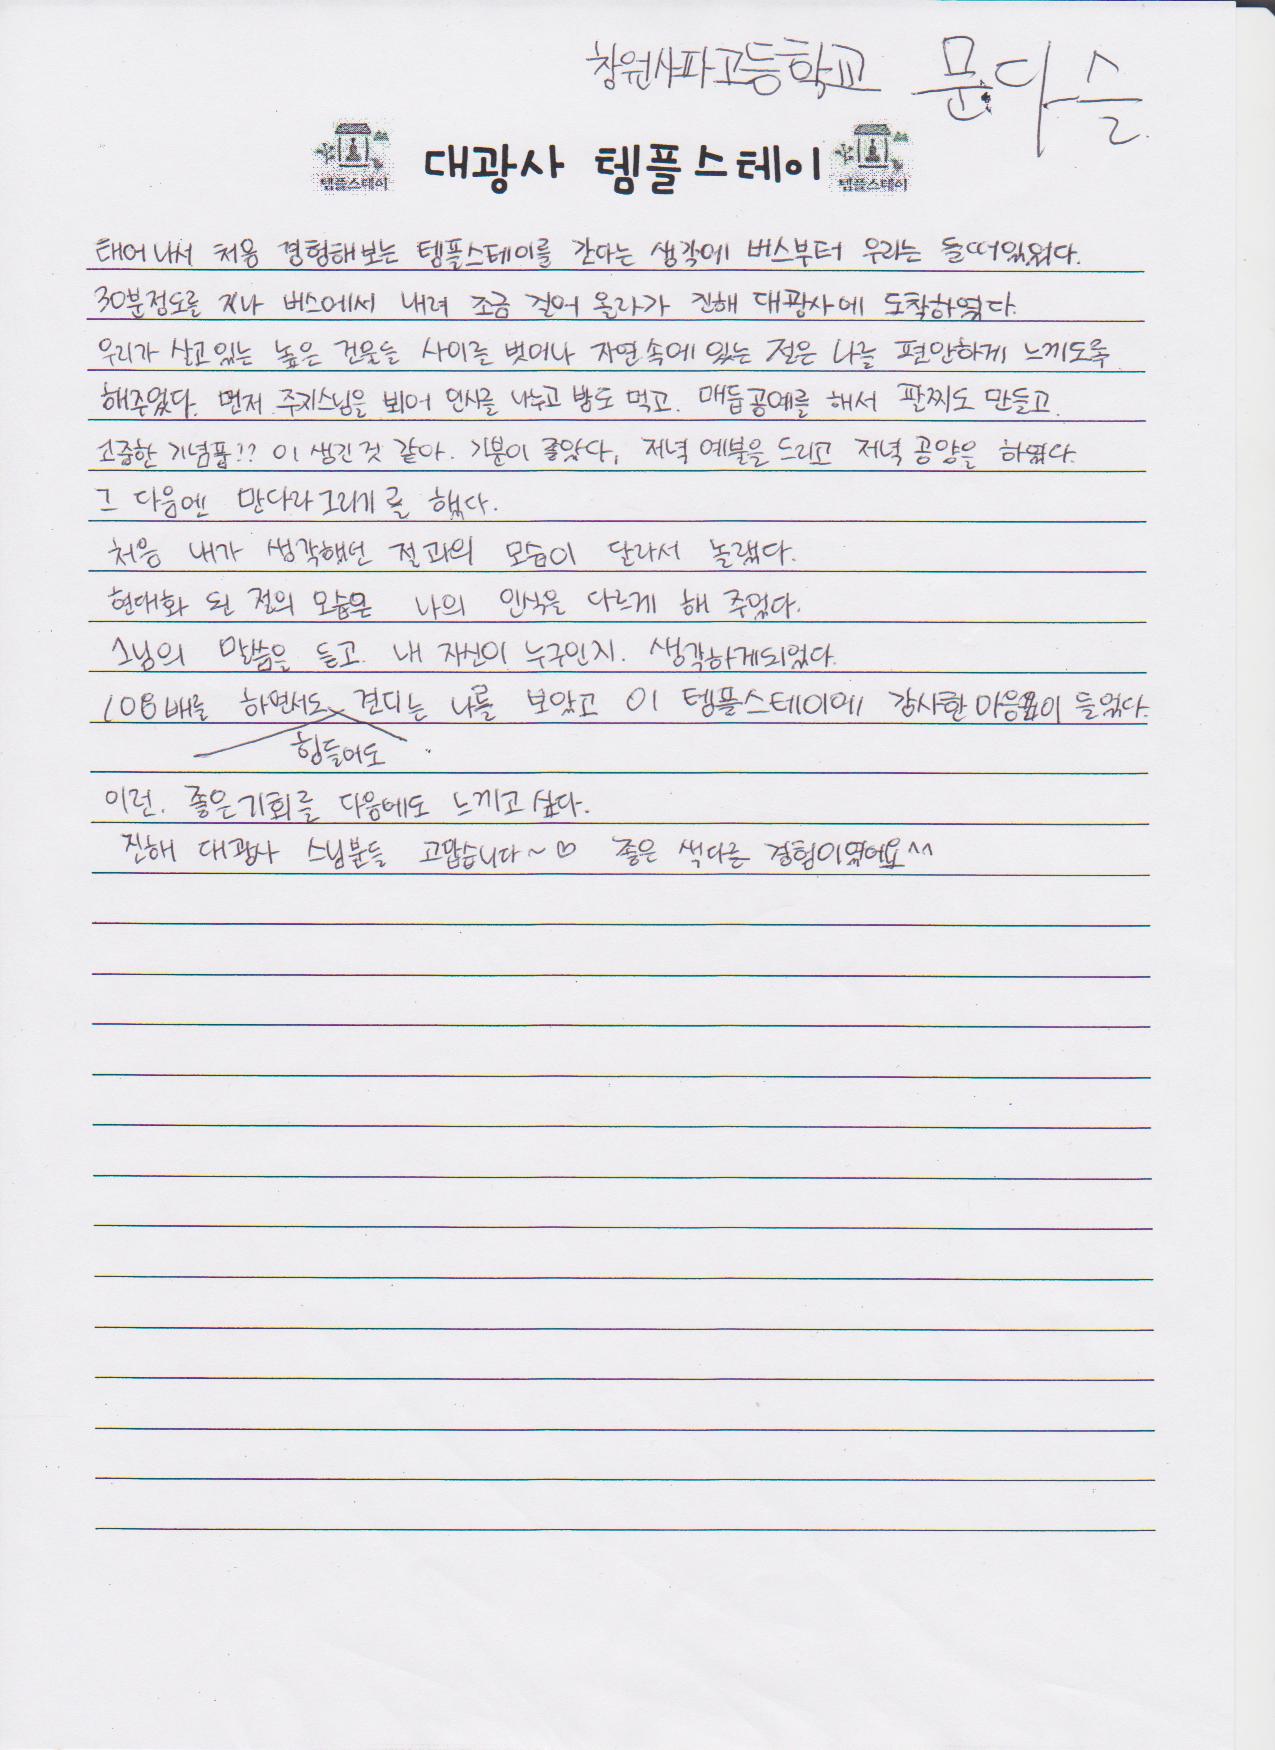 창원사파고등학교 문다슬
템플스테이 대광사 템플스테이 템플스테이
태어나서 처음 경험해보는 템플스테이를 간다는 생각에 버스부터 우리는 들떠있었다.
30분정도를 지나 버스에서 내려 조금 걸어 올라가 진해 대광사에 도착하였다.
우리가 살고있는 높은 건물들 사이를 벗어나 자연속에 있는 절은 나를 편안하게 느끼도록
해주었다. 먼저 주지스님을 뵈어 인사를 나누고 밥도 먹고. 매듭공예를 해서 팔찌도 만들고.
소중한 기념품!? 이 생긴것 같아. 기분이 좋았다, 저녁 예불을 드리고 저녁 공양을 하였다.
그 다음엔 만다라그리기를 했다.
처음 내가 생각했던 절과의 모습이 달라서 놀랬다.
현대화 된 절의 모습은 나의 인식을 다르게 해 주었다.
스님의 말씀을 듣고. 내 자신이 누구인지. 생각하게되었다.
108배를 하면서도 견디는 나를 보았고 이 템플스테이에 감사한 마음이 들었다.
힘들어도
이런. 좋은기회를 다음에도 느끼고 싶다.
진해 대광사 스님분들 고맙습니다~♡ 좋은 색다른 경험이였어요^^